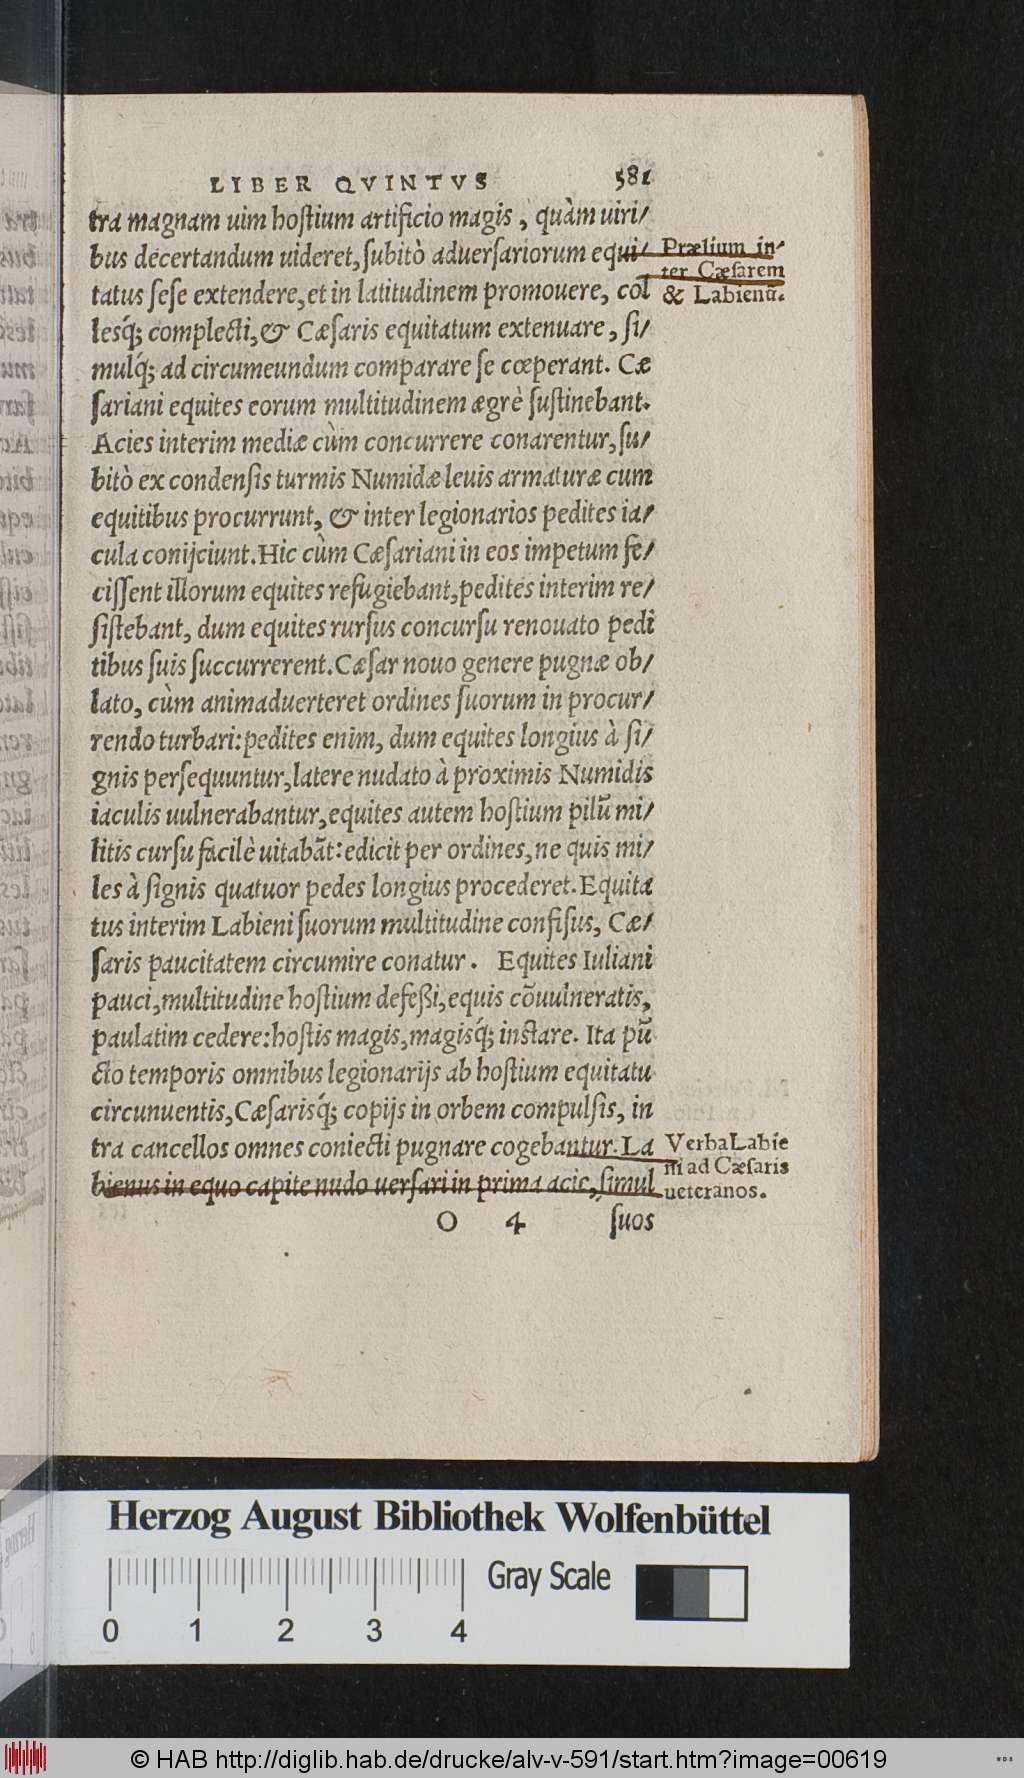 LIBER QVINTVS 581
tra magnam uim hoſtium artificio magis, quàm uiri/
bus decertandum uideret, ſubitò aduerſariorum equi/
tatus ſeſe extendere, et in latitudinem promouere, col
lesq́; complecti, & Cæſaris equitatum extenuare, ſi/
mulq́; ad circumeundum comparare ſe cœperant. Cæ
ſariani equites eorum multitudinem ægrè ſuſtinebant.
Acies interim mediæ cùm concurrere conarentur, ſu/
bitò ex condenſis turmis Numidæ leuis armaturæ cum
equitibus procurrunt, & inter legionarios pedites ia/
cula conijciunt. Hic cùm Cæſariani in eos impetum fe/
ciſſent illorum equites refugiebant, pedites interim re/
ſiſtebant, dum equites rurſus concurſu renouato pedi
tibus ſuis ſuccurrerent. Cæſar nouo genere pugnæ ob/
lato, cùm animaduerteret ordines ſuorum in procur/
rendo turbari: pedites enim, dum equites longius à ſi/
gnis perſequuntur, latere nudato à proximis Numidis
iaculis uulnerabantur, equites autem hoſtium pilū mi/
litis curſu facilè uitabāt: edicit per ordines, ne quis mi/
les à ſignis quatuor pedes longius procederet. Equita
tus interim Labieni ſuorum multitudine confiſus, Cæ/
ſaris paucitatem circumire conatur. Equites Iuliani
pauci, multitudine hoſtium defeßi, equis cōuulneratis,
paulatim cedere: hoſtis magis, magisq́; inſtare. Ita pū
cto temporis omnibus legionarijs ab hoſtium equitatu
circunuentis, Cæſarisq́; copijs in orbem compulſis, in
tra cancellos omnes coniecti pugnare cogebantur. La
bienus in equo capite nudo uerſari in prima acie, ſimul
O 4 ſuos
Prælium in-
ter Cæſarem
& Labienū.
Verba Labie
ni ad Cæſaris
ueteranos.
Herzog August Bibliothek Wolfenbüttel
Gray Scale
0 1 2 3 4
© HAB http://diglib.hab.de/drucke/alv-v-591/start.htm?image=00619